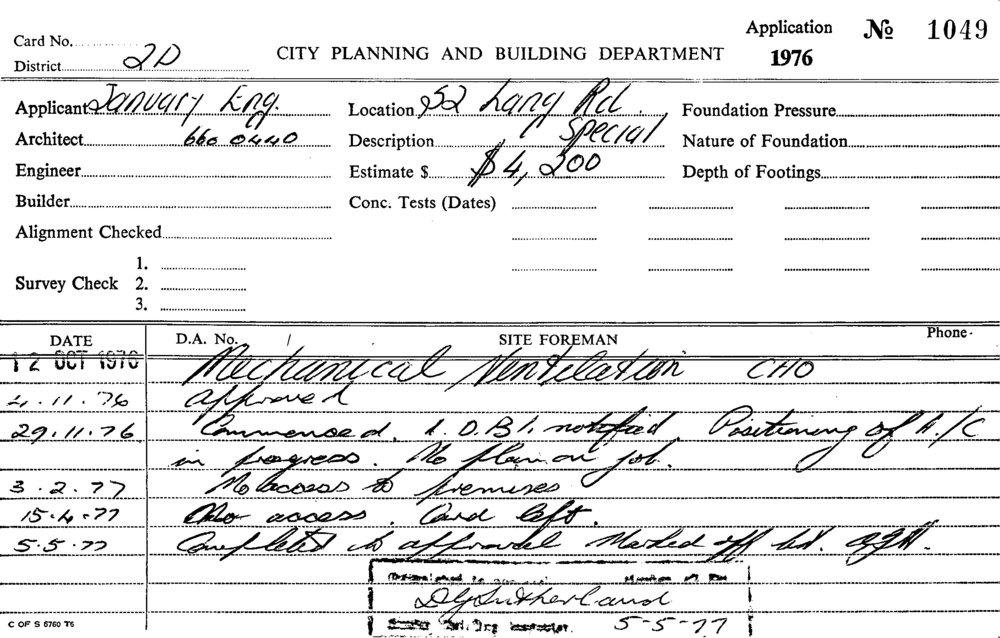 Application № 1049
Card No.
District 2D CITY PLANNING AND BUILDING DEPARTMENT 1976
Applicant January Eng. Location 52 Lang Rd. Foundation Pressure
Architect 660 0440 Description Special Nature of Foundation
Engineer Estimate $ $4,200 Depth of Footings
Builder Conc. Tests (Dates)
Alignment Checked
1.
Survey Check 2.
3.
DATE D.A. No. SITE FOREMAN Phone
12 OCT 1976 Mechanical Ventilation CHO
4.11.76 Approved
29.11.76 Commenced. D.B.I. notified Positioning of A/C
in progress. No plan on job.
3.2.77 No access to premises
15.4.77 No access. Card left.
5.5.77 Completed to approval Marked off
D G Sutherland
5-5-77
C OF S 6760 T6